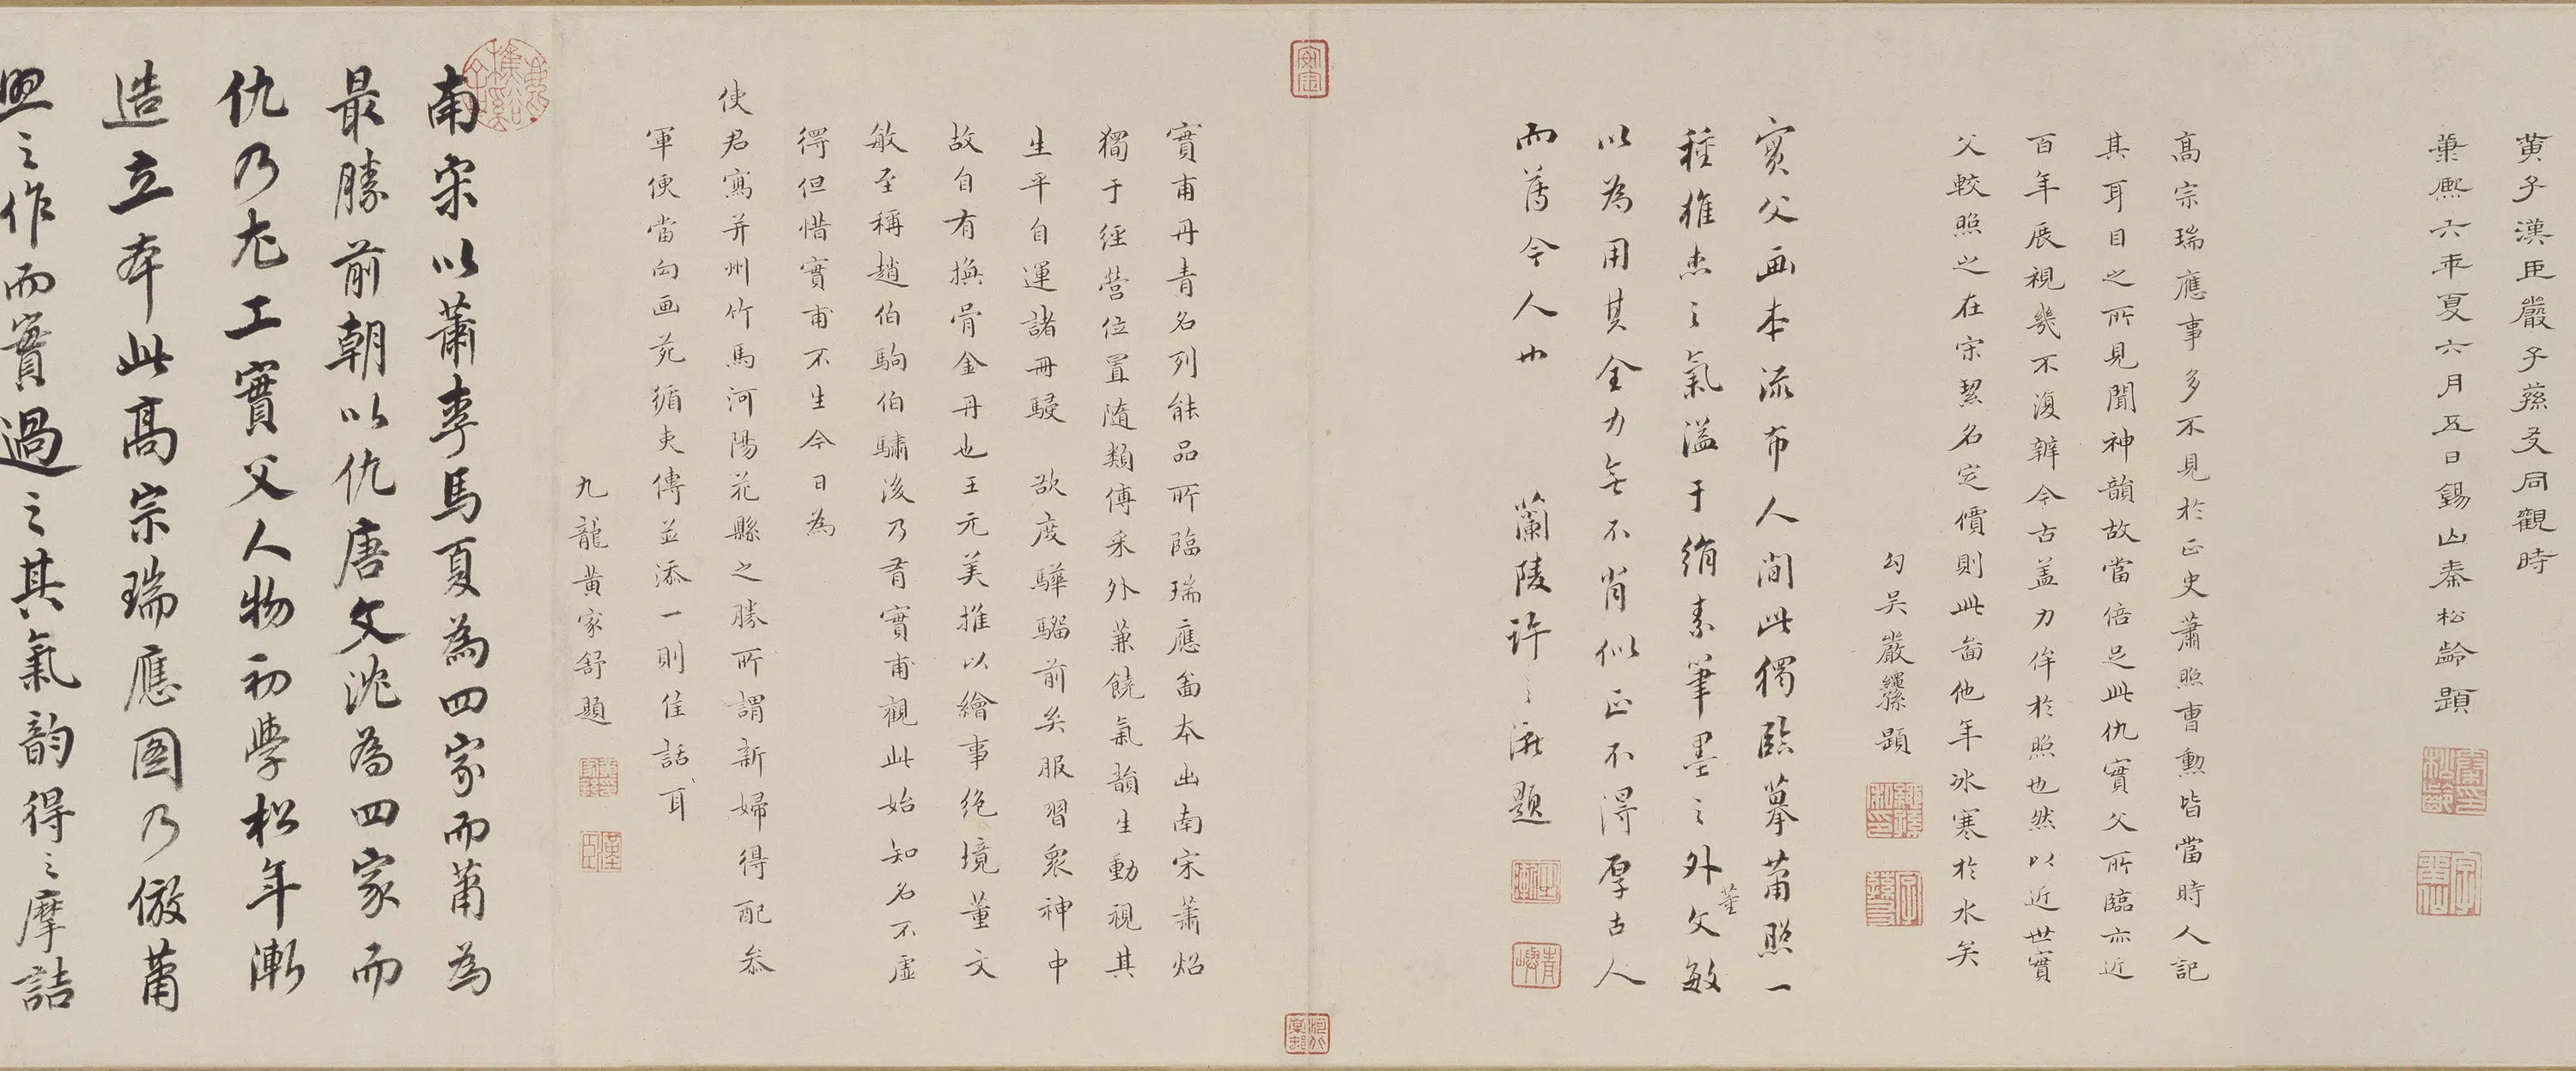 黄子漢臣嚴子蓀友同觀時
康熙六年夏六月五日錫山秦松齡題
高宗瑞應事多不見於正史蕭照曹勲皆當時人記
其耳目之所見聞神韻故當倍足此仇實父所臨亦近
百年展視幾不復辨今古盖力侔於照也然以近世實
父較照之在宋絜名定價則此啚他年冰寒於水矣
勾吴嚴繩孫題
實父画本流布人間此獨臨摹蕭照一
種推李之氣溢于絹素筆墨之外董文敏
以為用其全力無不肖似正不得厚古人
而薄今人也
蘭陵許之漸題
實甫丹青名列能品所臨瑞應啚本出南宋蕭炤
獨于經營位置隨類傅采外兼饒氣韻生動視其
生平自運諸冊駸駸欲度驊騮前矣服習衆神中
故自有換骨金丹也王元美推以繪事絶境董文
敏至稱趙伯駒伯驌後乃有實甫觀此始知名不虚
得但惜實甫不生今日為
使君寫并州竹馬河陽花縣之勝所謂新婦得配叅
軍便當向画苑循吏傳並添一則佳話耳
九龍黄家舒題
南宋以蕭李馬夏為四家而蕭為
最勝前朝以仇唐文沈為四家而
仇乃尤工實父人物初學松年漸
造立本此高宗瑞應圖乃倣蕭
照之作而實過之其氣韵得之摩詰